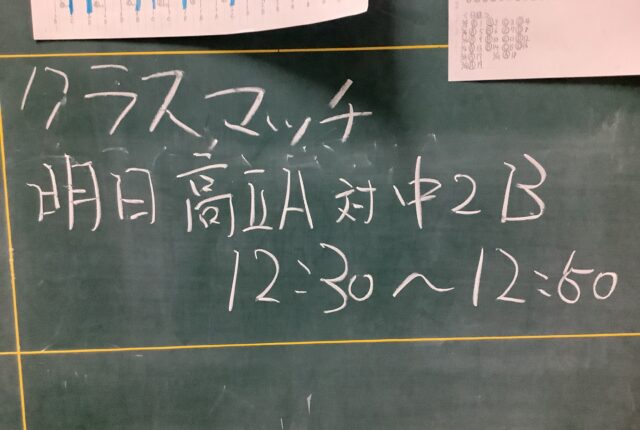 クラスマッチ
明日高ⅡA対中2B
12:30～12:50